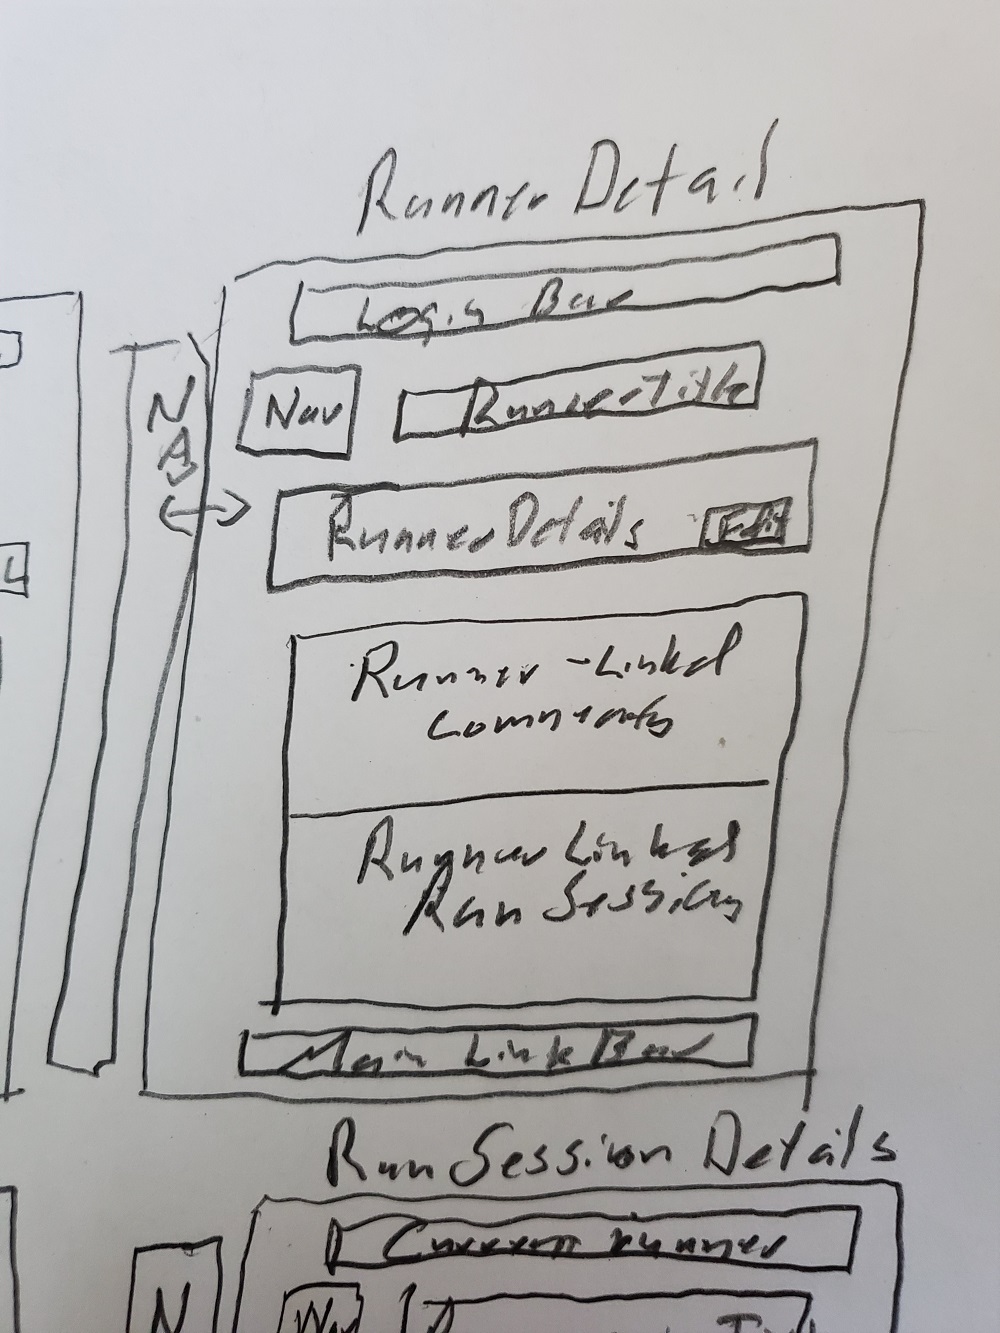 Runner Detail
Login Bar
NAV
Nav
Runner Title
Runner Details
Edit
Runner-Linked
Comments
Runner Linked
Run Sessions
Main Link Bar
Run Session Details
Current Runner
N